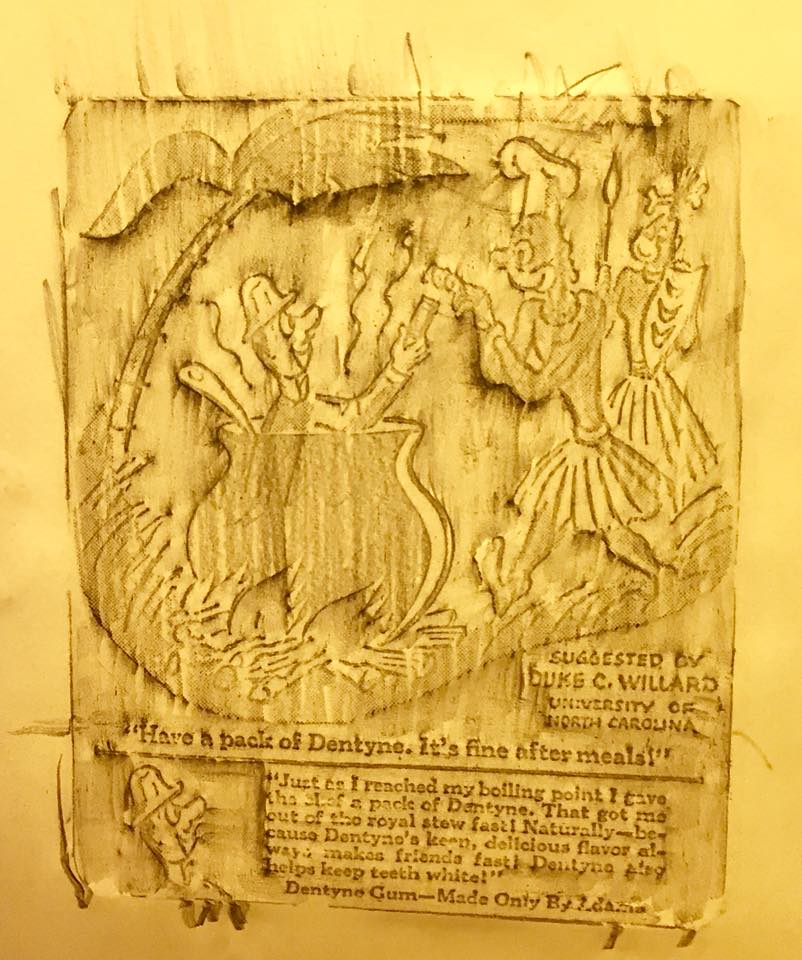 SUGGESTED BY
DUKE C. WILLARD
UNIVERSITY OF
NORTH CAROLINA
"Have a pack of Dentyne. It's fine after meals!"
"Just as I reached my boiling point I gave
the chef a pack of Dentyne. That got me
out of the royal stew fast! Naturally—be-
cause Dentyne's keen, delicious flavor al-
ways makes friends fast! Dentyne also
helps keep teeth white!"
Dentyne Gum—Made Only By Adams